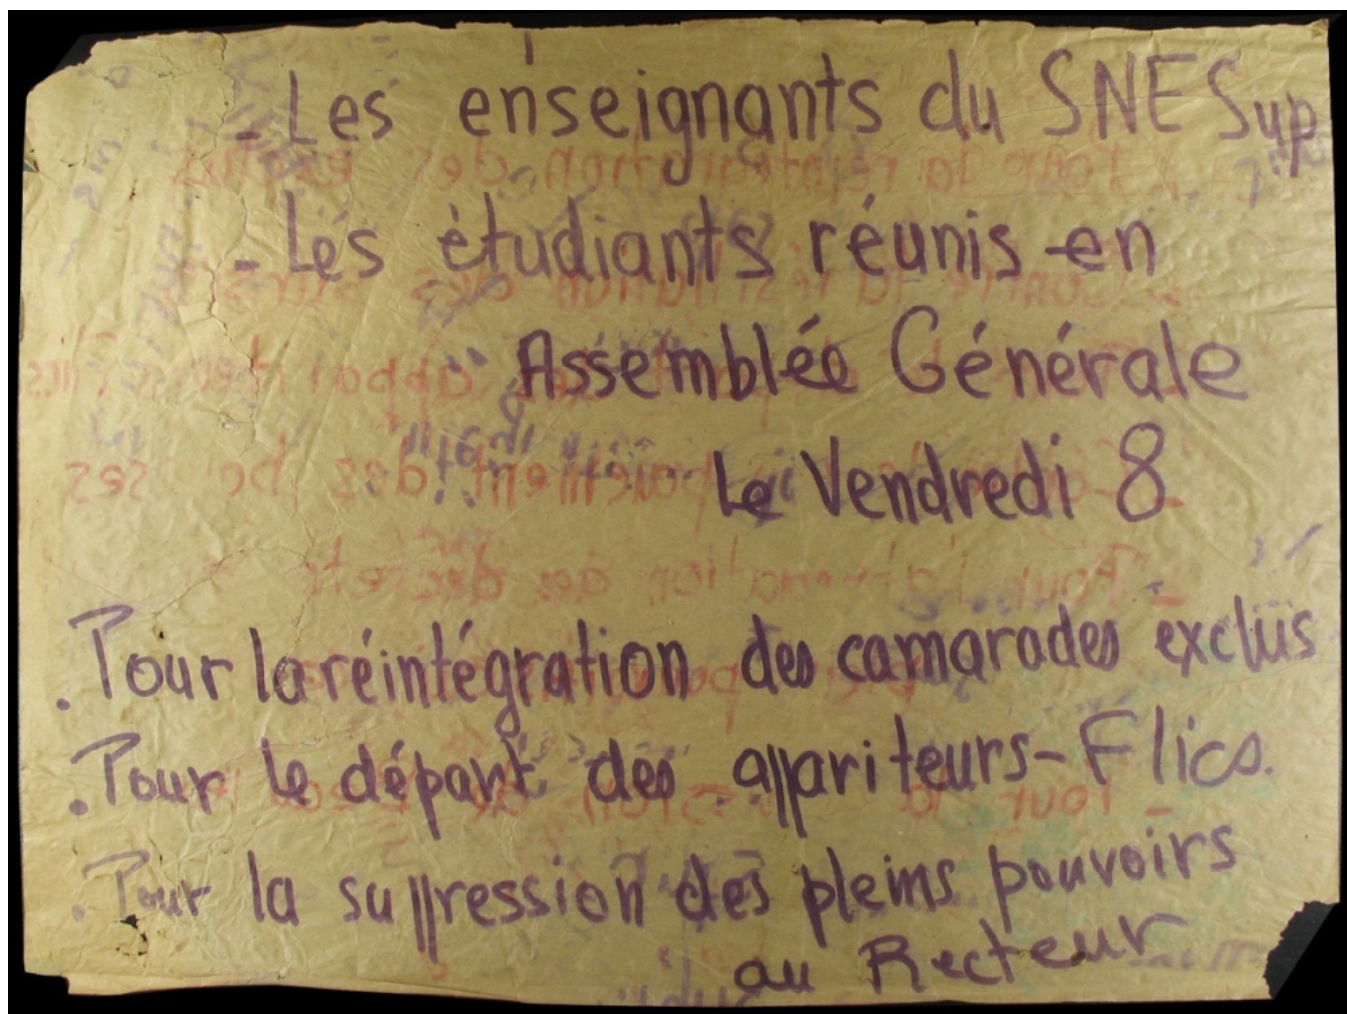 - Les enseignants du SNE Sup
- Les étudiants réunis en
Assemblée Générale
Le Vendredi 8
. Pour la réintégration des camarades exclus
. Pour le départ des appariteurs-Flics.
. Pour la suppression des pleins pouvoirs
au Recteur